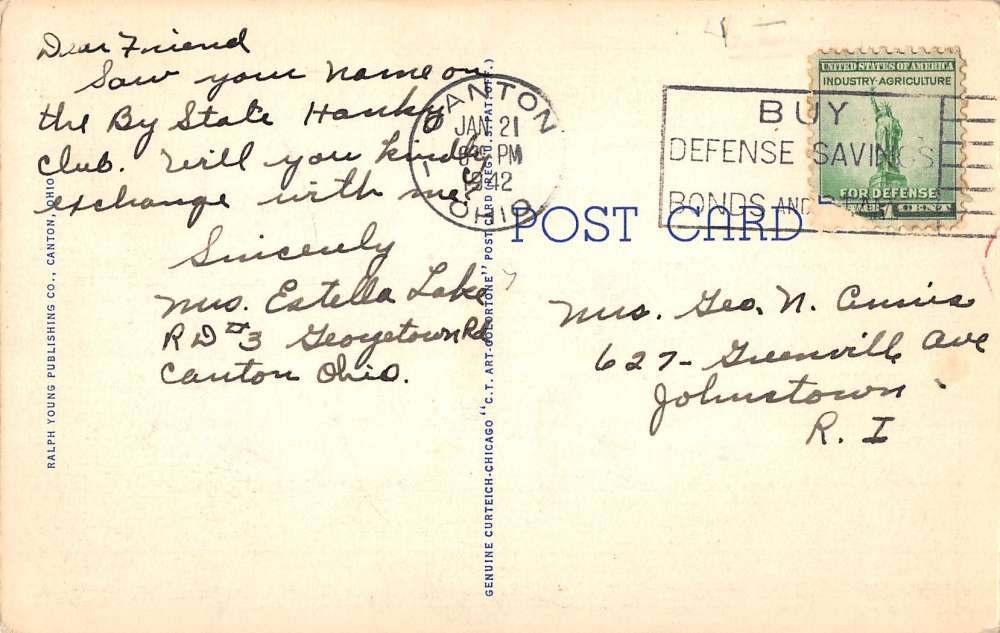 Dear Friend
Saw your name on
the By State Hanky
club. Will you kindly
exchange with me?
Sincerely
Mrs. Estella Lake
R D #3 Georgetown Rd
Canton Ohio.
RALPH YOUNG PUBLISHING CO., CANTON, OHIO
GENUINE CURTEICH-CHICAGO "C.T. ART-COLORTONE" POST CARD (REG. U.S. PAT. OFF.)
CANTON
JAN 21
PM
1942
OHIO
BUY
DEFENSE SAVINGS
BONDS AND
UNITED STATES OF AMERICA
INDUSTRY-AGRICULTURE
FOR DEFENSE
CENT
POST CARD
Mrs. Geo. N.
627- Greenville Ave
Johnstown
R. I